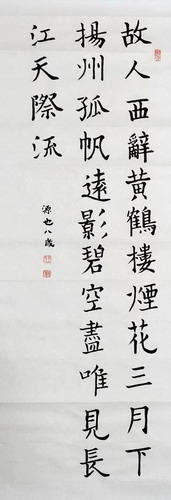 故人西辭黃鶴樓煙花三月下
揚州孤帆遠影碧空盡唯見長
江天際流
源也八歲